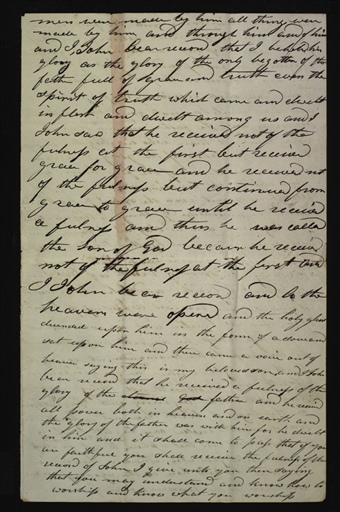 men were made by him all things were
made by him and through him and of him
and I John bear record that I beheld his
glory as the glory of the only begotten of the
father full of grace and truth even the
spirit of truth which came and dwelt
in flesh and dwelt among us and I
John saw that he received not of the
fulness at the first but received
grace for grace and he received not
of the fulness but continued from
grace to grace until he received
a fulness and thus he was called
the Son of God because he received
not of the fulness at the first and
I John bear record and lo the
heavens were opened and the holy ghost
descended upon him in the form of a dove and
set upon him and there came a voice out of
heaven saying this is my beloved son and I John
bear record that he received a fulness of the
glory of the father and he received
all power both in heaven and on earth and
the glory of the father was with him for he dwelt
in him and it shall come to pass that if you
are faithful you shall receive the fulness of the
record of John I give unto you these sayings
that you may understand and know how to
worship and know what you worship